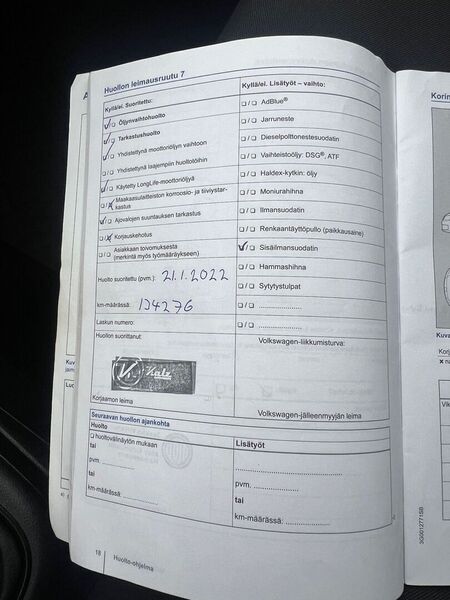 Huollon leimausruutu 7
Kyllä/ei. Suoritettu:
Öljynvaihtohuolto
Tarkastushuolto
Yhdistettynä moottoriöljyn vaihtoon
Yhdistettynä laajempiin huoltotöihin
Käytetty LongLife-moottoriöljyä
Maakaasulaitteiston korroosio- ja tiiviystar-
kastus
Ajovalojen suuntauksen tarkastus
Korjauskehotus
Asiakkaan toivomuksesta
(merkintä myös työmääräykseen)
Huolto suoritettu (pvm.): 21.1.2022
km-määrässä: 134276
Laskun numero:
Huollon suorittanut:
Katz
Korjaamon leima
Kyllä/ei. Lisätyöt – vaihto:
AdBlue®
Jarruneste
Dieselpolttonestesuodatin
Vaihteistoöljy: DSG®, ATF
Haldex-kytkin: öljy
Moniurahihna
Ilmansuodatin
Renkaantäyttöpullo (paikkausaine)
Sisäilmansuodatin
Hammashihna
Sytytystulpat
Volkswagen-liikkumisturva:
Volkswagen-jälleenmyyjän leima
Seuraavan huollon ajankohta
Huolto
huoltovälinäytön mukaan
tai
pvm.
tai
km-määrässä:
Lisätyöt
pvm.
tai
km-määrässä:
18 Huolto-ohjelma
3G0012771SB
Korin